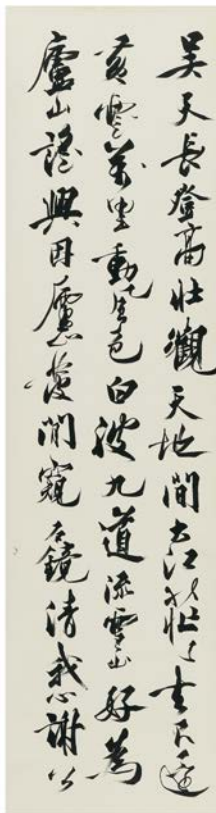 吳天長登高壯觀天地間大江茫々去不還
黃雲萬里動風色白波九道流雪山好為
廬山謠興因廬山發閒窺石鏡清我心謝公